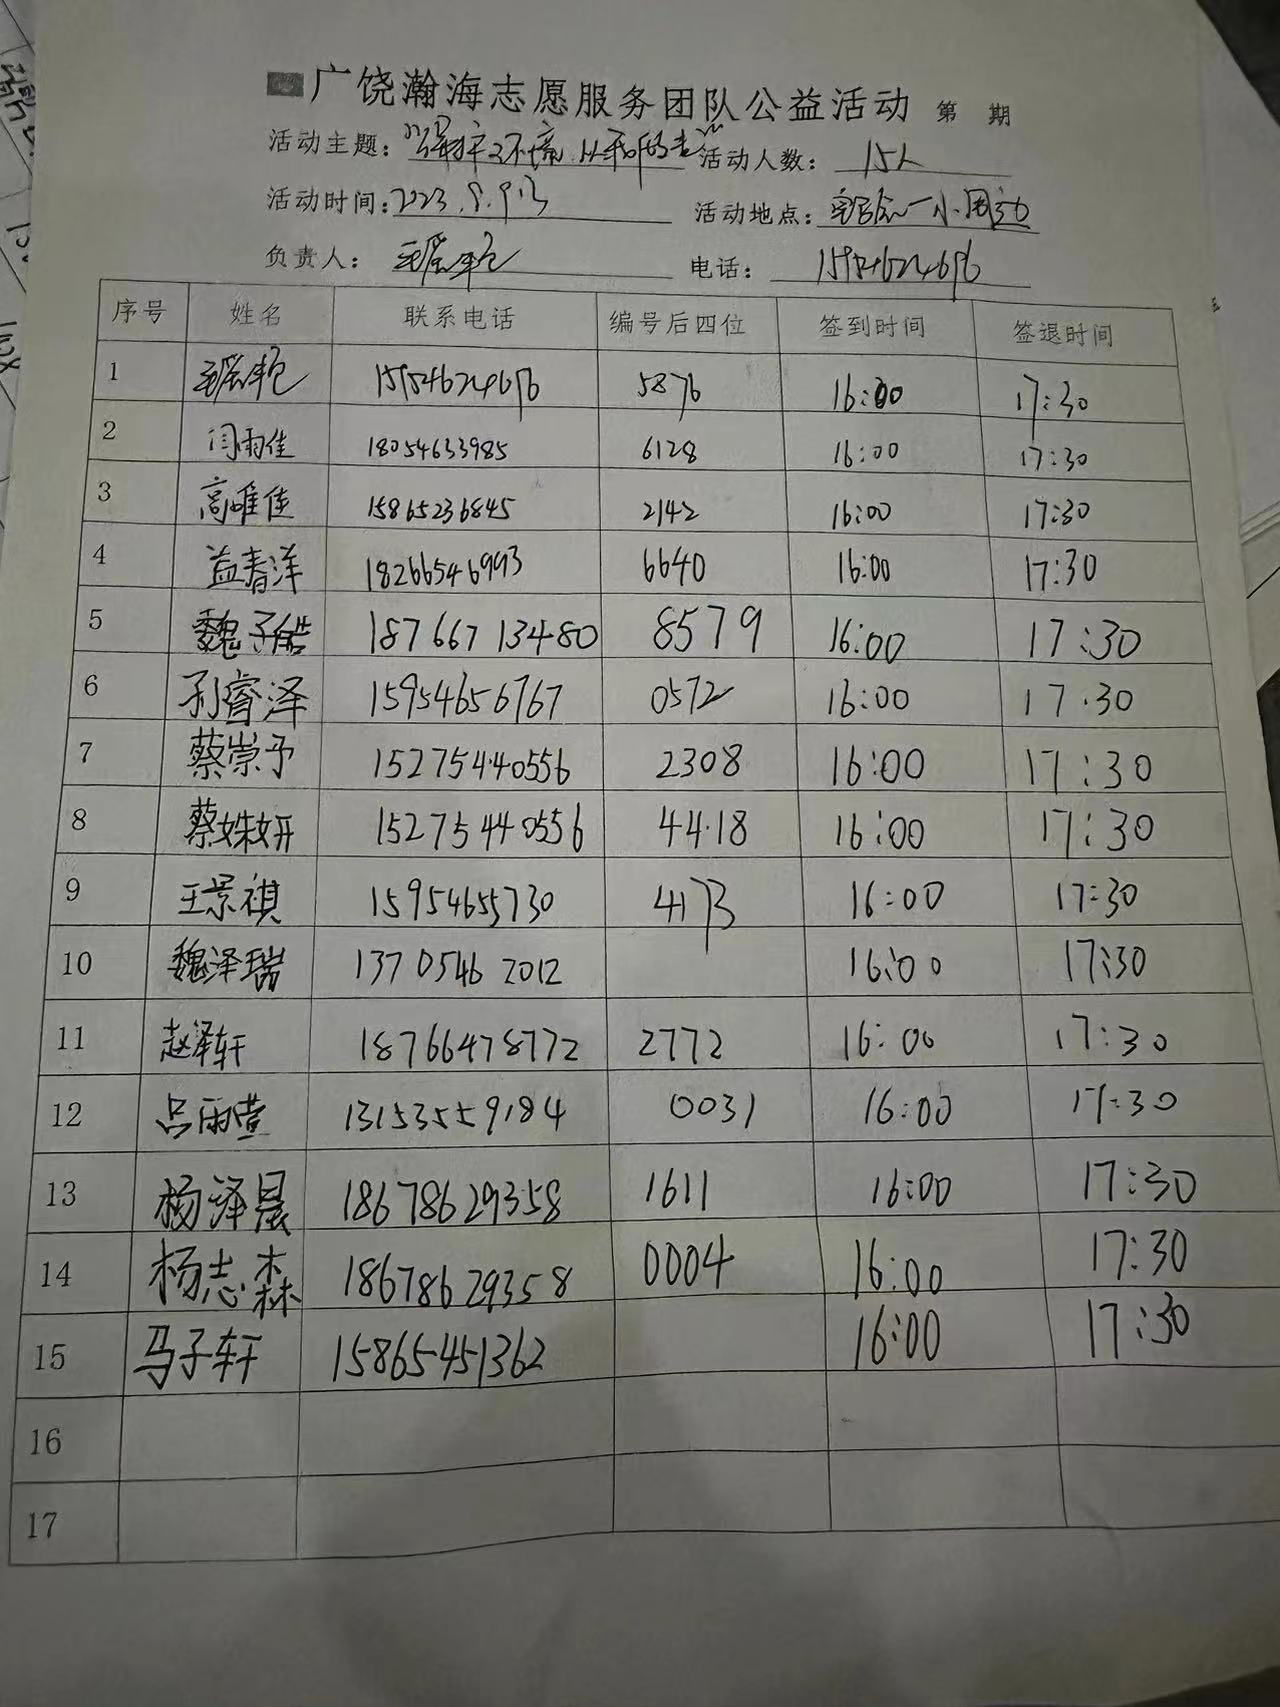 广饶瀚海志愿服务团队公益活动 第 期
活动主题: 活动人数: 15人
活动时间: 2023.9.9 活动地点: 实验一小周边
负责人: 电话: 15954624696
序号 姓名 联系电话 编号后四位 签到时间 签退时间
1 15954624696 5876 16:00 17:30
2 闫雨佳 18054633985 6128 16:00 17:30
3 高唯佳 15865236845 2142 16:00 17:30
4 益春洋 18266546993 6640 16:00 17:30
5 魏子皓 18766713480 8579 16:00 17:30
6 孙睿泽 15954656767 0572 16:00 17.30
7 蔡崇予 15275440556 2308 16:00 17:30
8 蔡姝妍 15275440556 4418 16:00 17:30
9 王景祺 15954655730 4173 16:00 17:30
10 魏泽瑞 13705462012 16:00 17:30
11 赵泽轩 18766478772 2772 16:00 17:30
12 吕雨萱 13153559184 0031 16:00 17:30
13 杨泽晨 18678629358 1611 16:00 17:30
14 杨志森 18678629358 0004 16:00 17:30
15 马子轩 15865451362 16:00 17:30
16
17